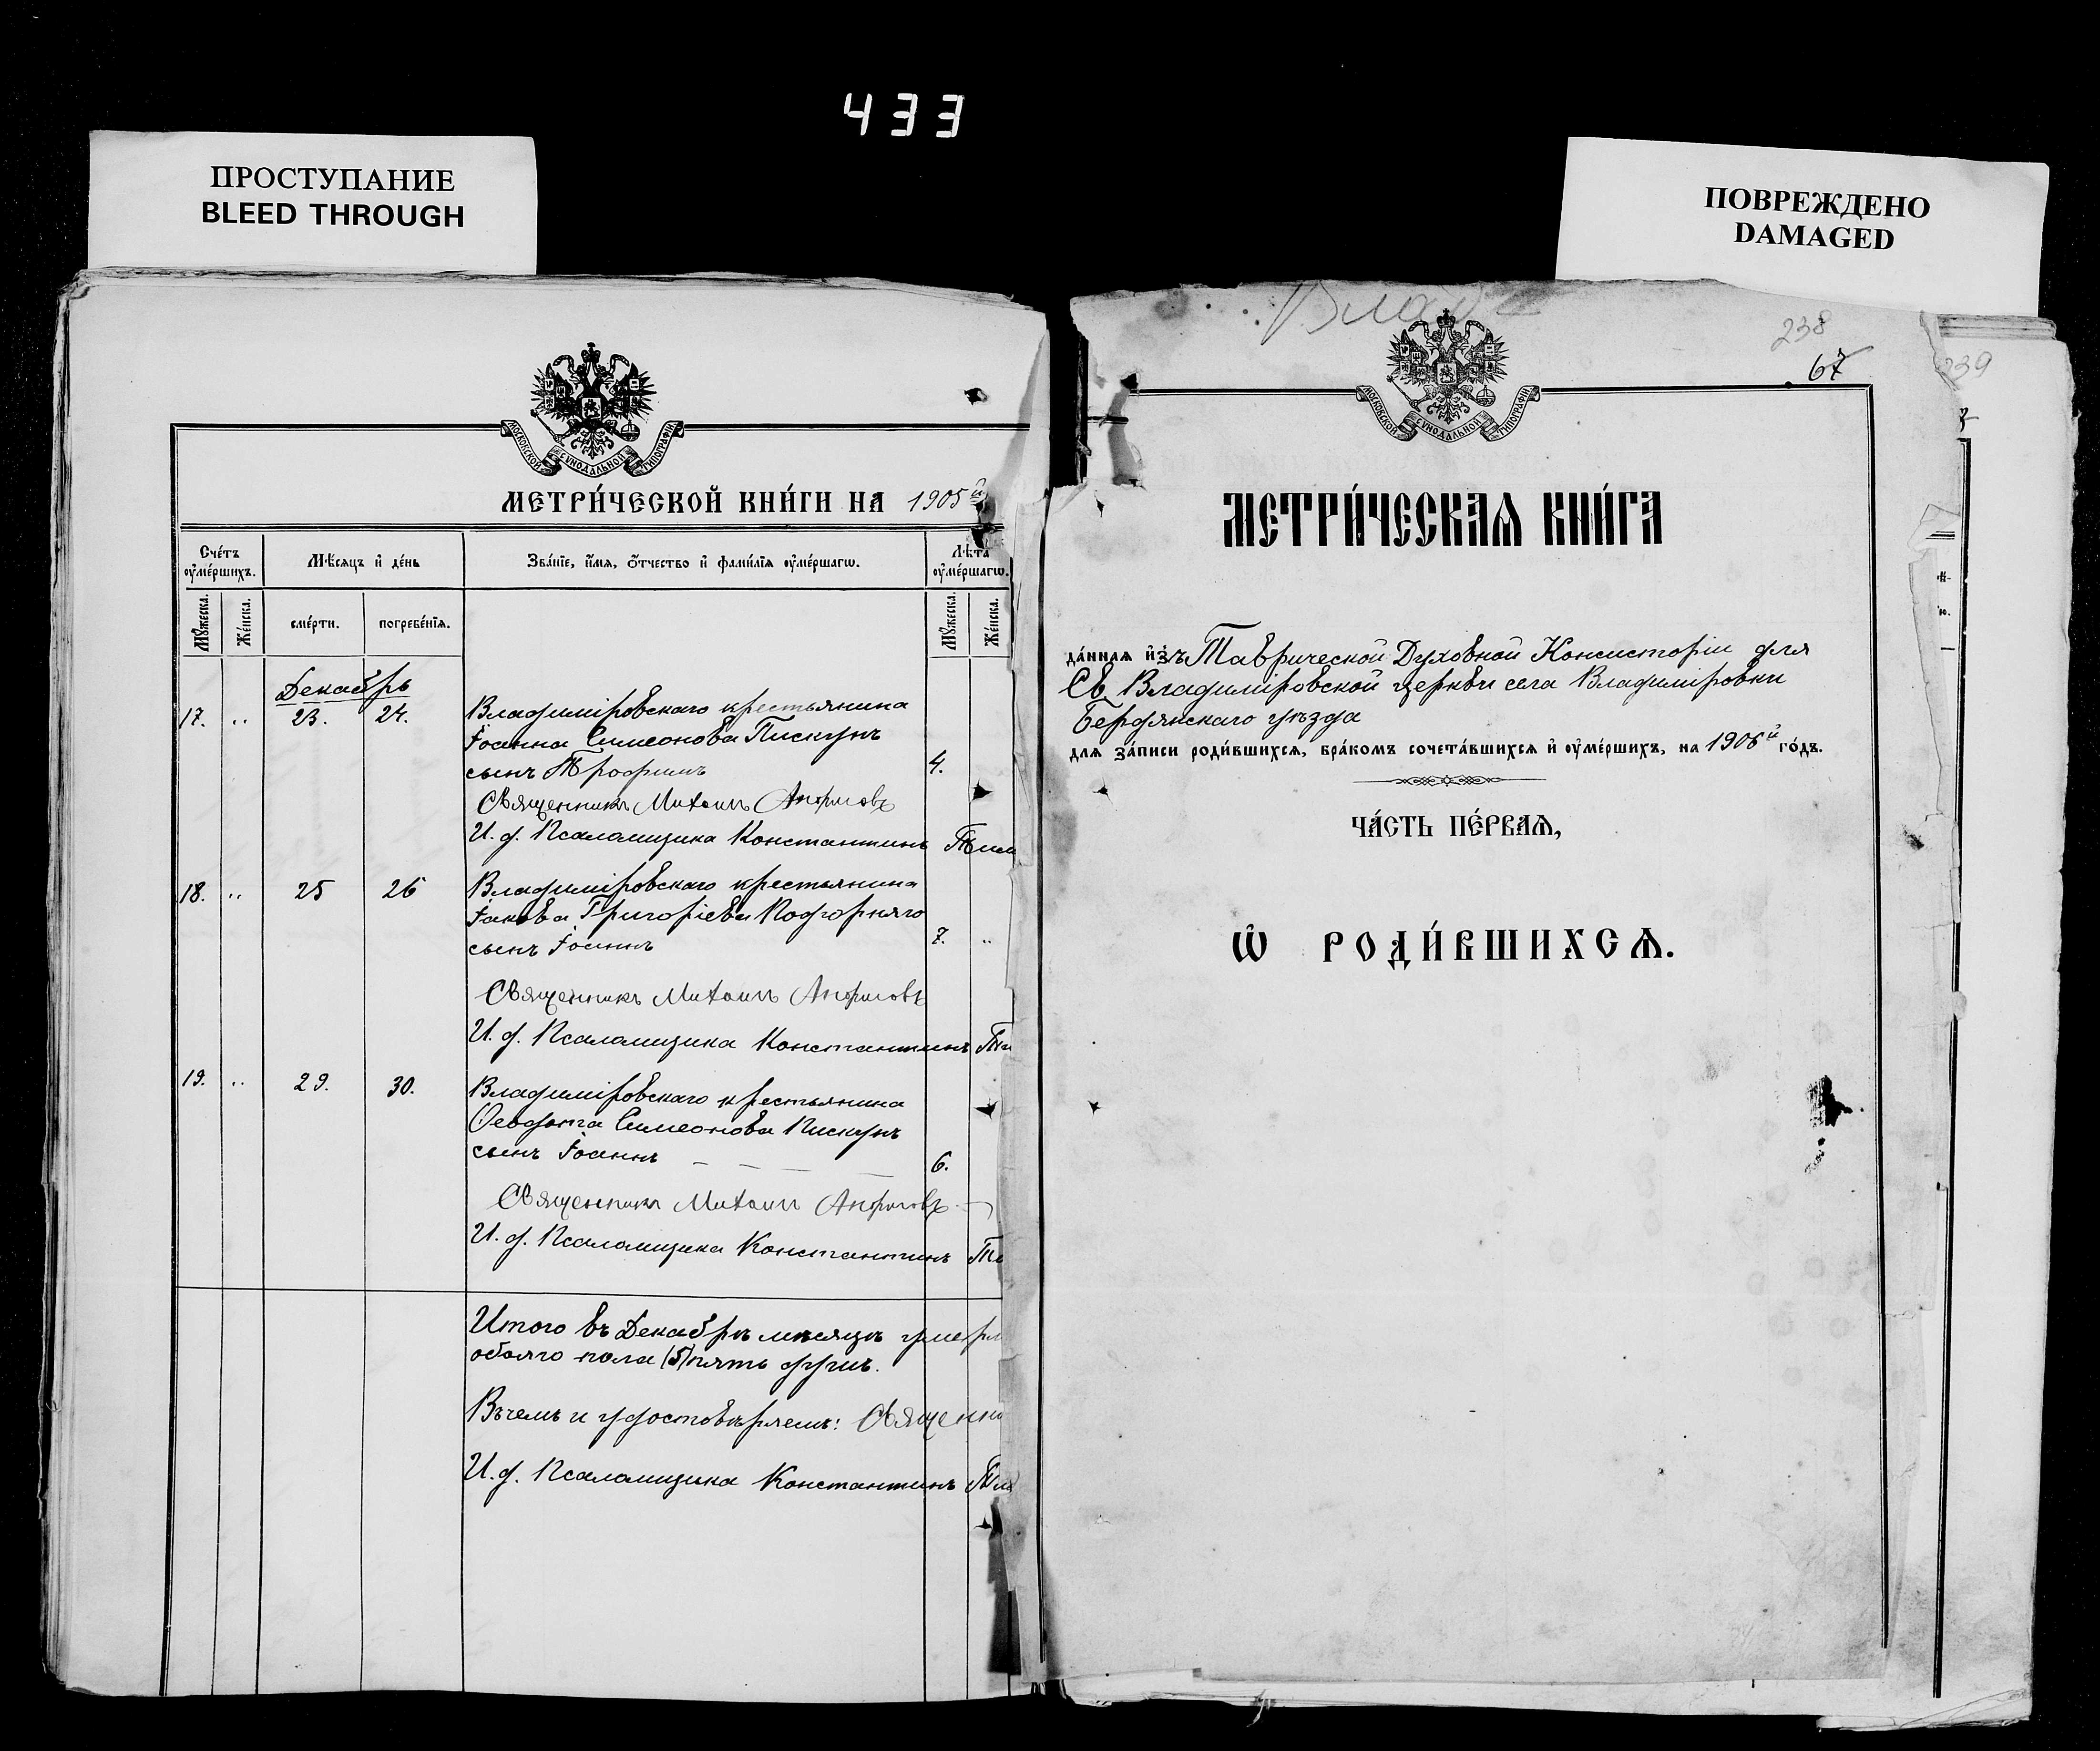 433
ПРОСТУПАНИЕ
BLEED THROUGH
ПОВРЕЖДЕНО
DAMAGED
МОСКОВСКОЙ СѴНОДАЛЬНОЙ ТИПОГРАФІИ
МЕТРИ́ЧЕСКОЙ КНИ́ГИ НА 1905й
Сче́тъ ᲂу҆ме́ршихъ.
Мѣ́сяцъ и҆ де́нь
Зва́нїе, и҆́мя, ѻ҆́тчество и҆ фами́лїя ᲂу҆ме́ршагѡ.
Лѣ́та ᲂу҆ме́ршагѡ.
Мꙋ́жеска.
Же́нска.
сме́рти.
погребе́нїя.
Мꙋ́жеска.
Же́нска.
Декабрь
17. „ 23. 24. Владимiровскаго крестьянина
Іоанна Симеонова Пискунъ
сынъ Трофимъ 4.
Священникъ Михаилъ
И. д. Псаломщика Константинъ
18. „ 25 26 Владимiровскаго крестьянина
Іакова Григорiева Подгорняго
сынъ Іоаннъ 7. „
Священникъ Михаилъ
И. д. Псаломщика Константинъ
19. „ 29. 30. Владимiровскаго крестьянина
Ѳеодота Симеонова Пискунъ
сынъ Іоаннъ 6.
Священникъ Михаилъ
И. д. Псаломщика Константинъ
Итого въ Декабрѣ мѣсяцѣ умерл
обоего пола (5) пять душъ.
Въ чемъ и удостовѣряемъ: Священни
И. д. Псаломщика Константинъ
238
67
239
МОСКОВСКОЙ СѴНОДАЛЬНОЙ ТИПОГРАФІИ
МЕТРИ́ЧЕСКАЯ КНИ́ГА
да́нная и҆зъ Таврической Духовной Консисторiи для
Св. Владимiровской церкви села Владимiровки
Бердянскаго уѣзда
для за́писи роди́вшихся, бра́комъ сочета́вшихся и҆ ᲂу҆ме́ршихъ, на 1906й го́дъ.
ЧА́СТЬ ПЕ́РВАЯ,
Ѡ҆ РОДИ́ВШИХСЯ.